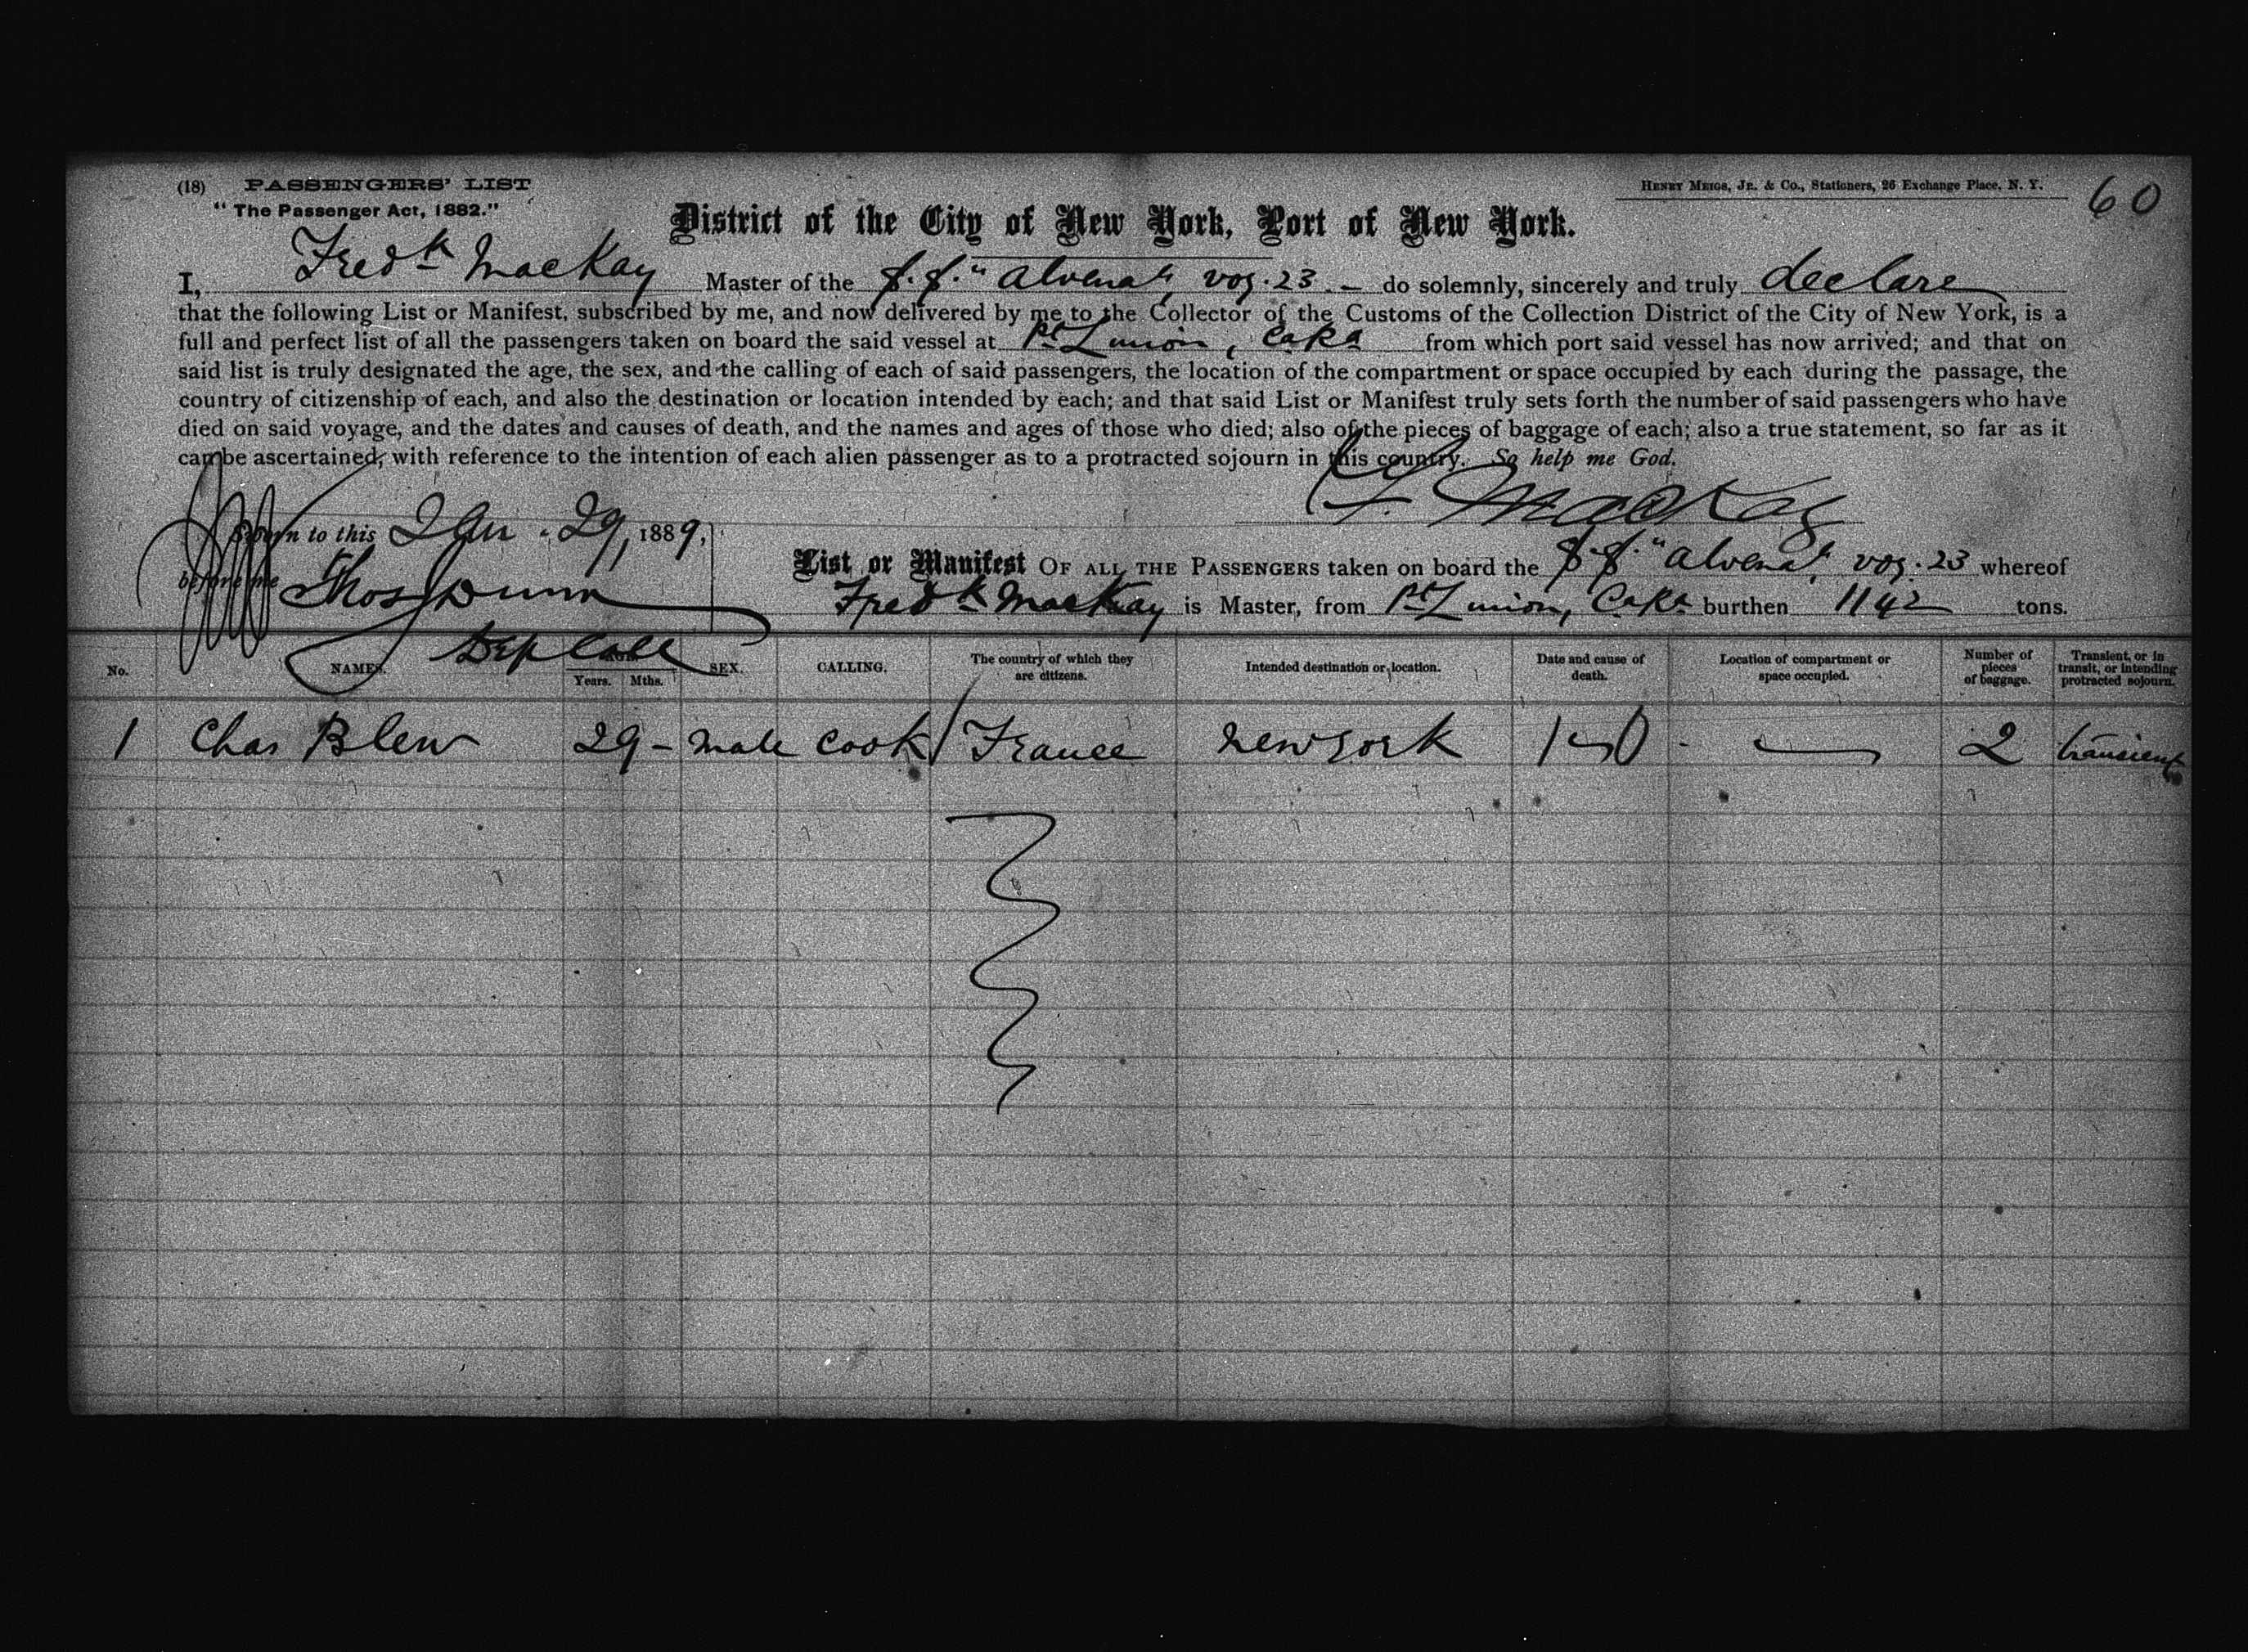 (18) PASSENGERS' LIST
"The Passenger Act, 1882."
HENRY MEIGS, JR. & CO., Stationers, 26 Exchange Place, N. Y.
60
District of the City of New York, Port of New York.
I, Fredk MacKay Master of the S.S. "Alvena", voy. 23 - do solemnly, sincerely and truly declare
that the following List or Manifest, subscribed by me, and now delivered by me to the Collector of the Customs of the Collection District of the City of New York, is a
full and perfect list of all the passengers taken on board the said vessel at Pt Limon, from which port said vessel has now arrived; and that on
said list is truly designated the age, the sex, and the calling of each of said passengers, the location of the compartment or space occupied by each during the passage, the
country of citizenship of each, and also the destination or location intended by each; and that said List or Manifest truly sets forth the number of said passengers who have
died on said voyage, and the dates and causes of death, and the names and ages of those who died; also of the pieces of baggage of each; also a true statement, so far as it
can be ascertained, with reference to the intention of each alien passenger as to a protracted sojourn in this country. So help me God.
F. MacKay
Sworn to this Jan. 29, 1889,
before me Thos Dunn
Dep Coll
List or Manifest OF ALL THE PASSENGERS taken on board the S.S. "Alvena", voy. 23 whereof
Fredk MacKay is Master, from Pt Limon, burthen 1142 tons.
No. NAMES. AGE. Years. Mths. SEX. CALLING. The country of which they are citizens. Intended destination or location. Date and cause of death. Location of compartment or space occupied. Number of pieces of baggage. Transient, or in transit, or intending protracted sojourn.
1 Chas Blew 29 - male cook France New York 2 transient